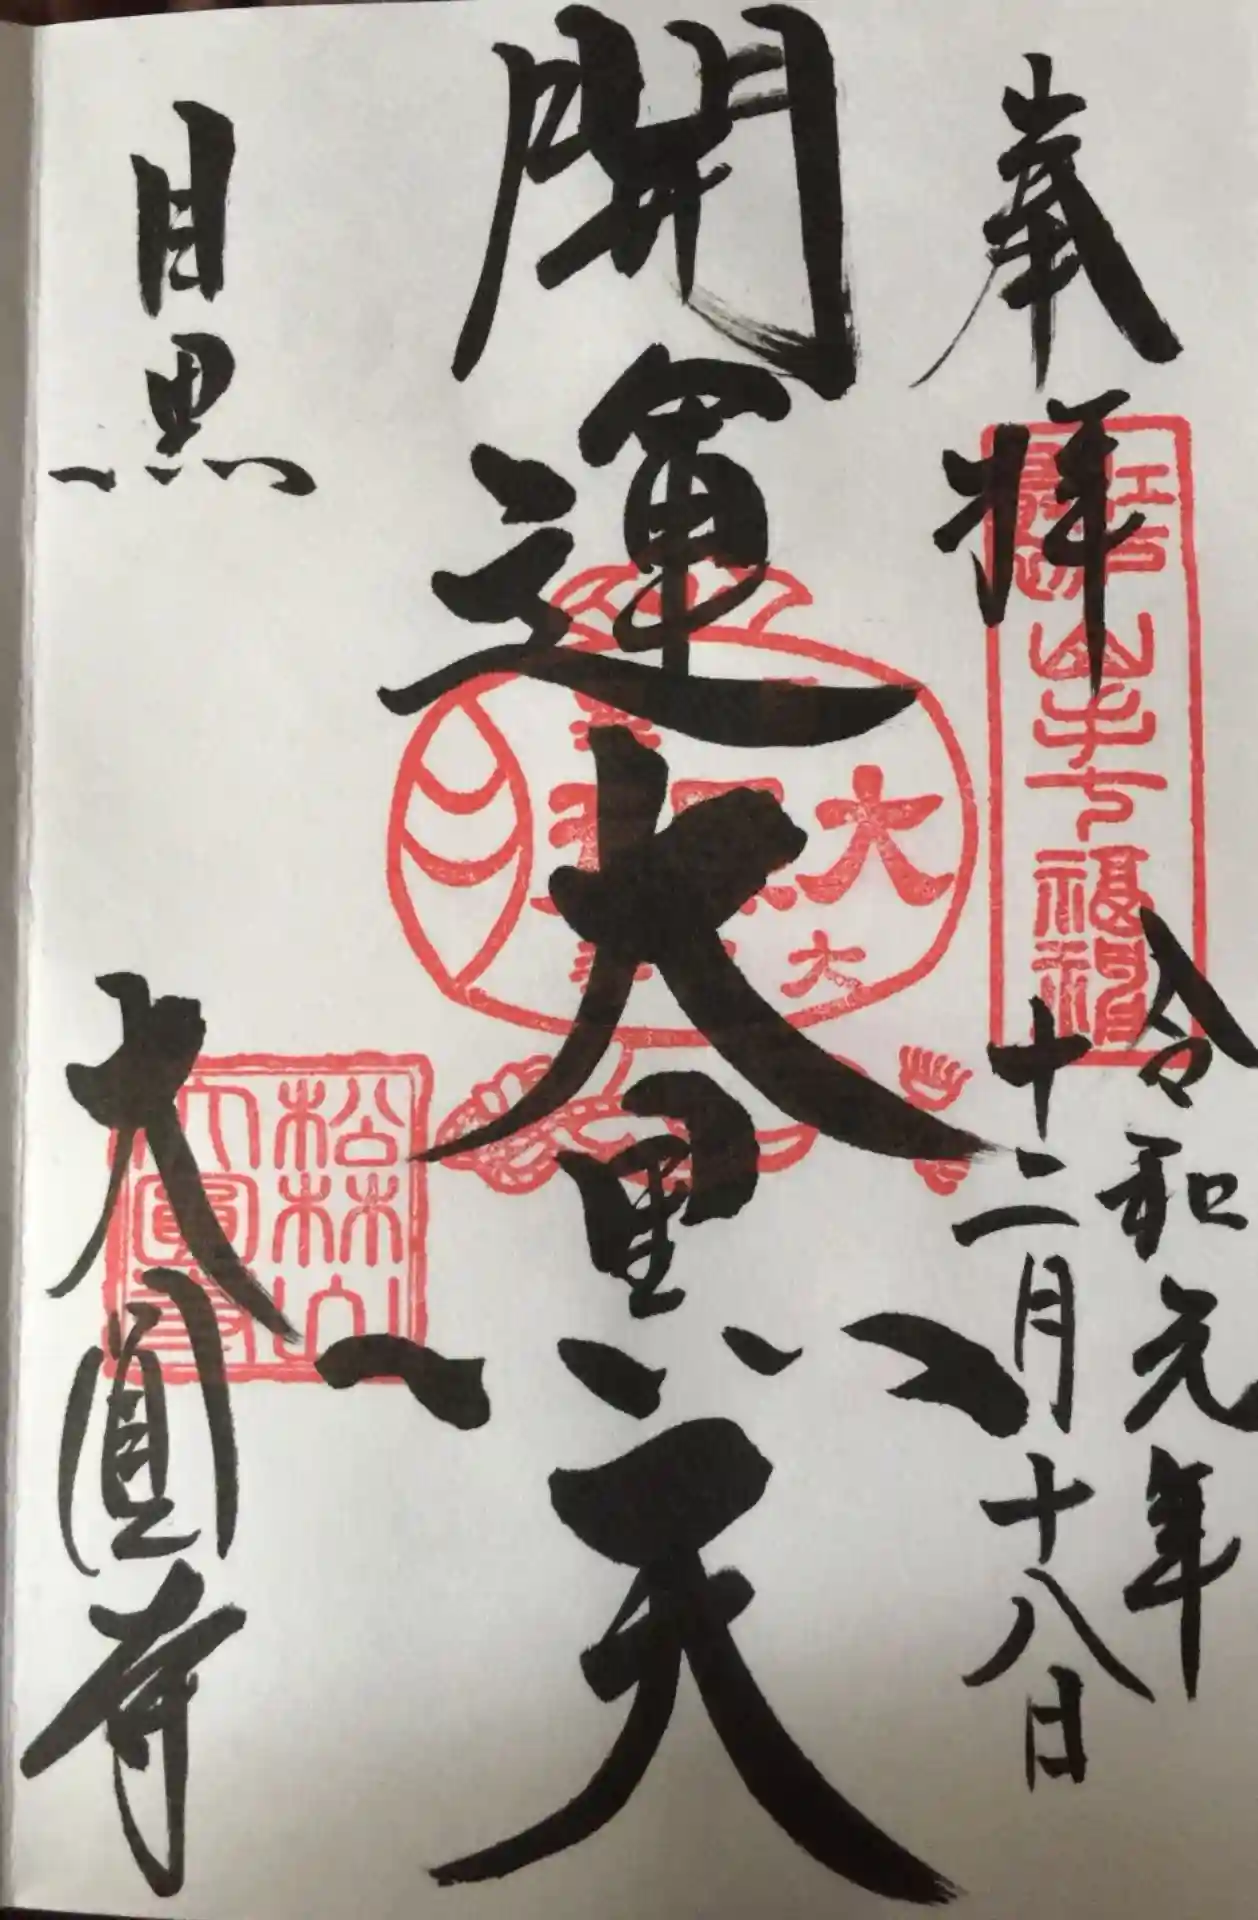 奉拝
令和元年
十二月十八日
江戸最初
山手七福神
開運大黒天
大
大
目黒
大圓寺
松林山
大圓寺